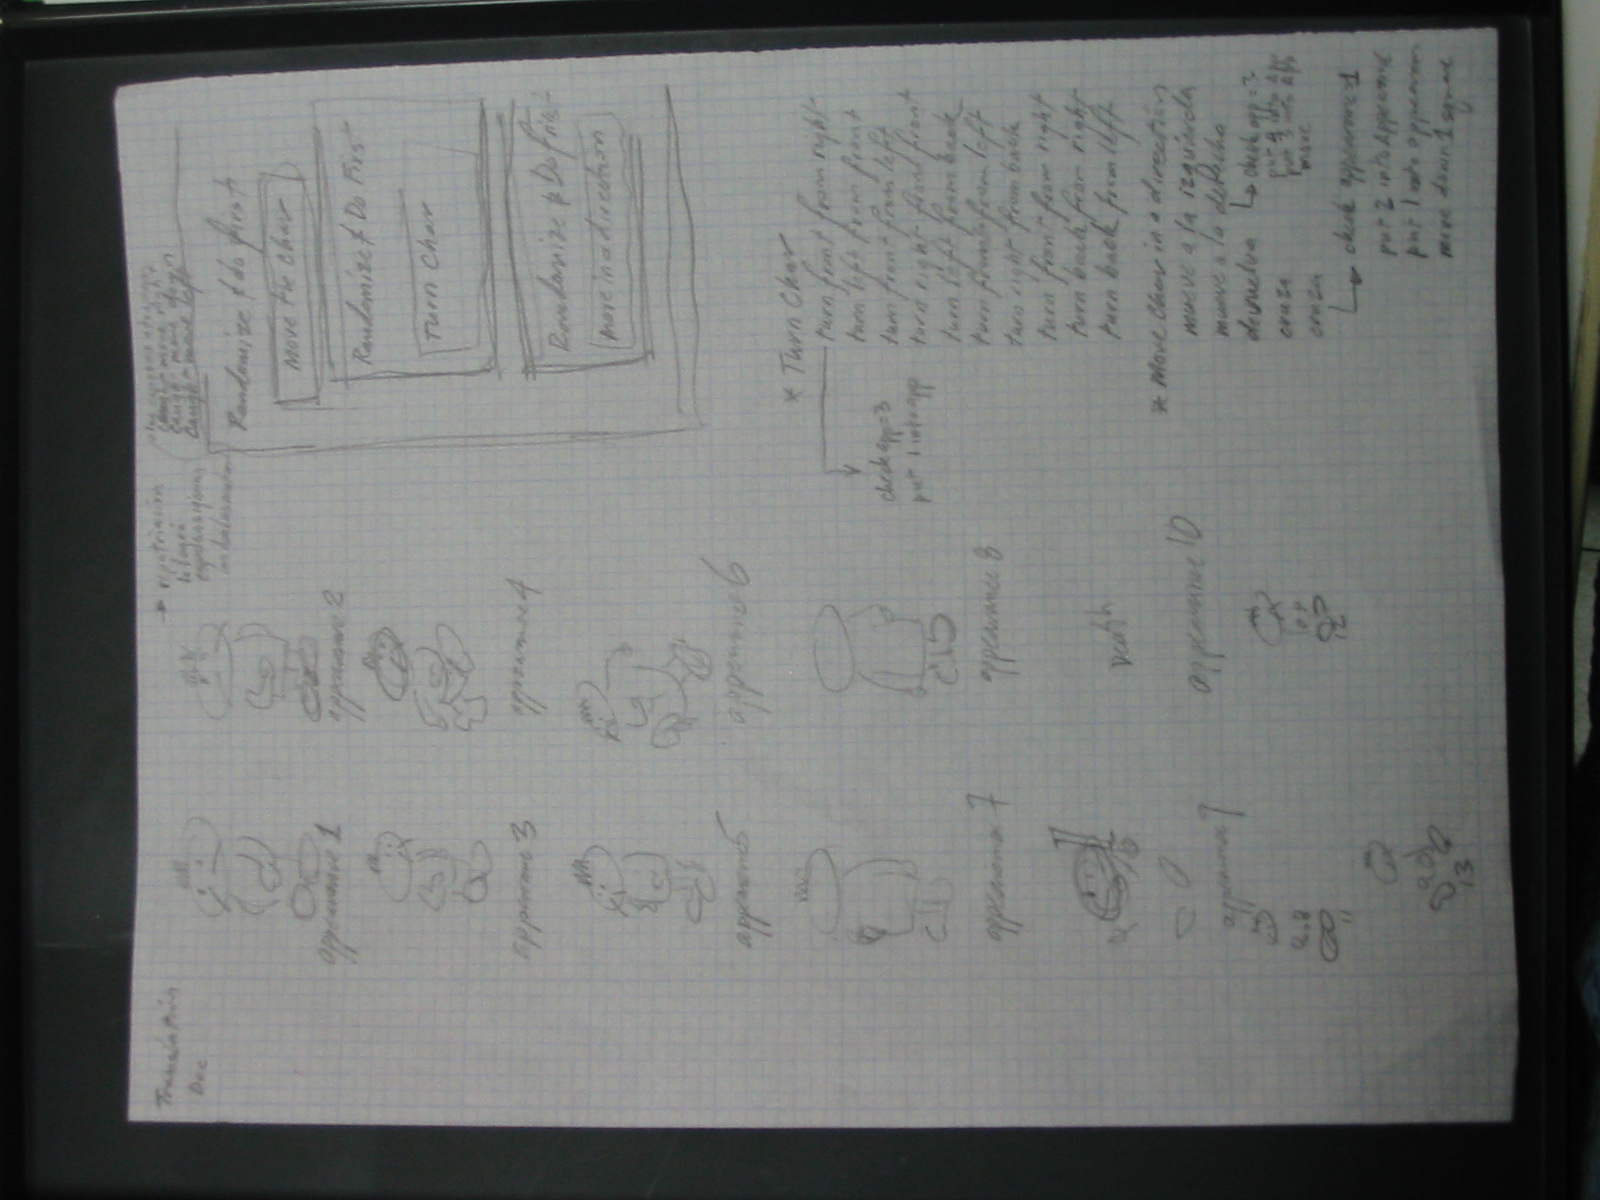 Translation
Doc
appearance 1
appearance 2
appearance 3
appearance 4
appearance 5
appearance 6
appearance 7
appearance 8
death
appearance 10
11
12
13
→ repatriación
Randomize & do first
Move the char
Randomize & Do First
Turn Char
Randomize & Do First
move in a direction
* Turn Char
turn front from right
turn left from front
turn front from left
turn right from front
turn left from back
turn front from left
turn right from back
turn front from right
turn back from right
turn back from left
check app=3
put 1 into app
* Move Char in a direction
mueve a la izquierda
mueve a la derecha
devuelva
↳ check app=3
move
cruza
cruza
↳ check appearance 1
put 2 into appearance
put 1 into appearance
move down 1 square